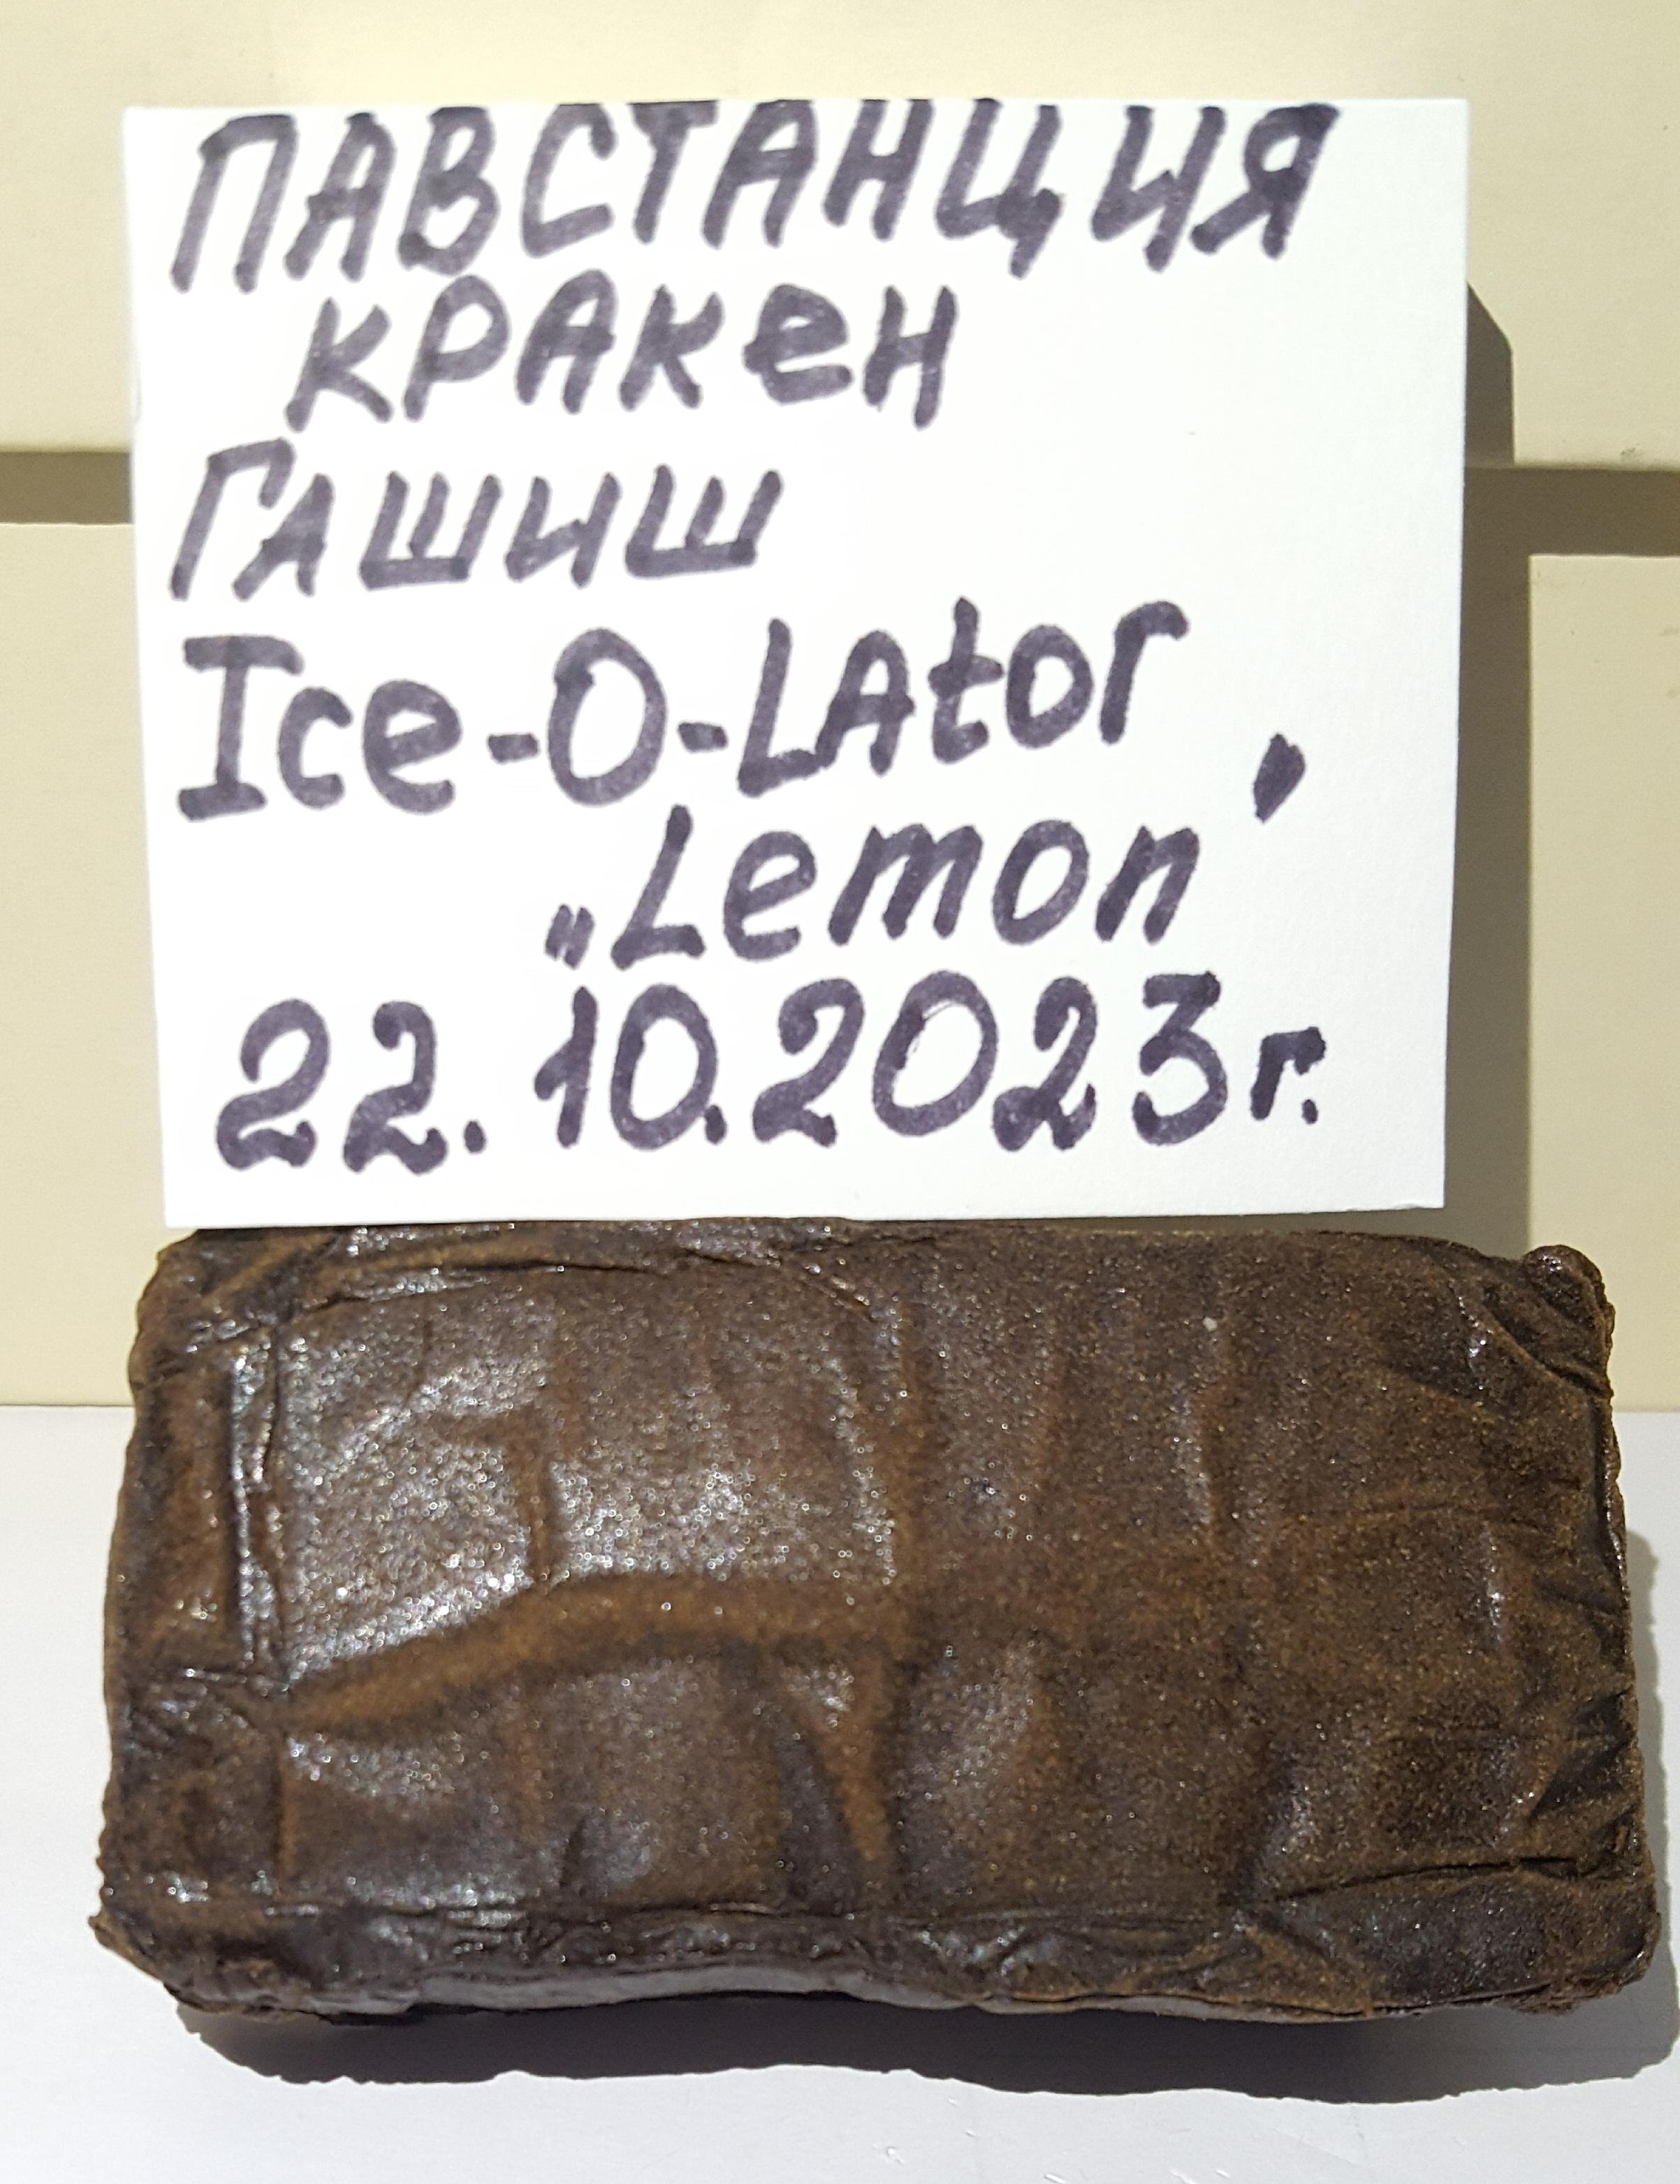 ПАВСТАНЦИЯ
КРАКЕН
ГАШИШ
Ice-O-LAtor,
„Lemon"
22.10.2023г.